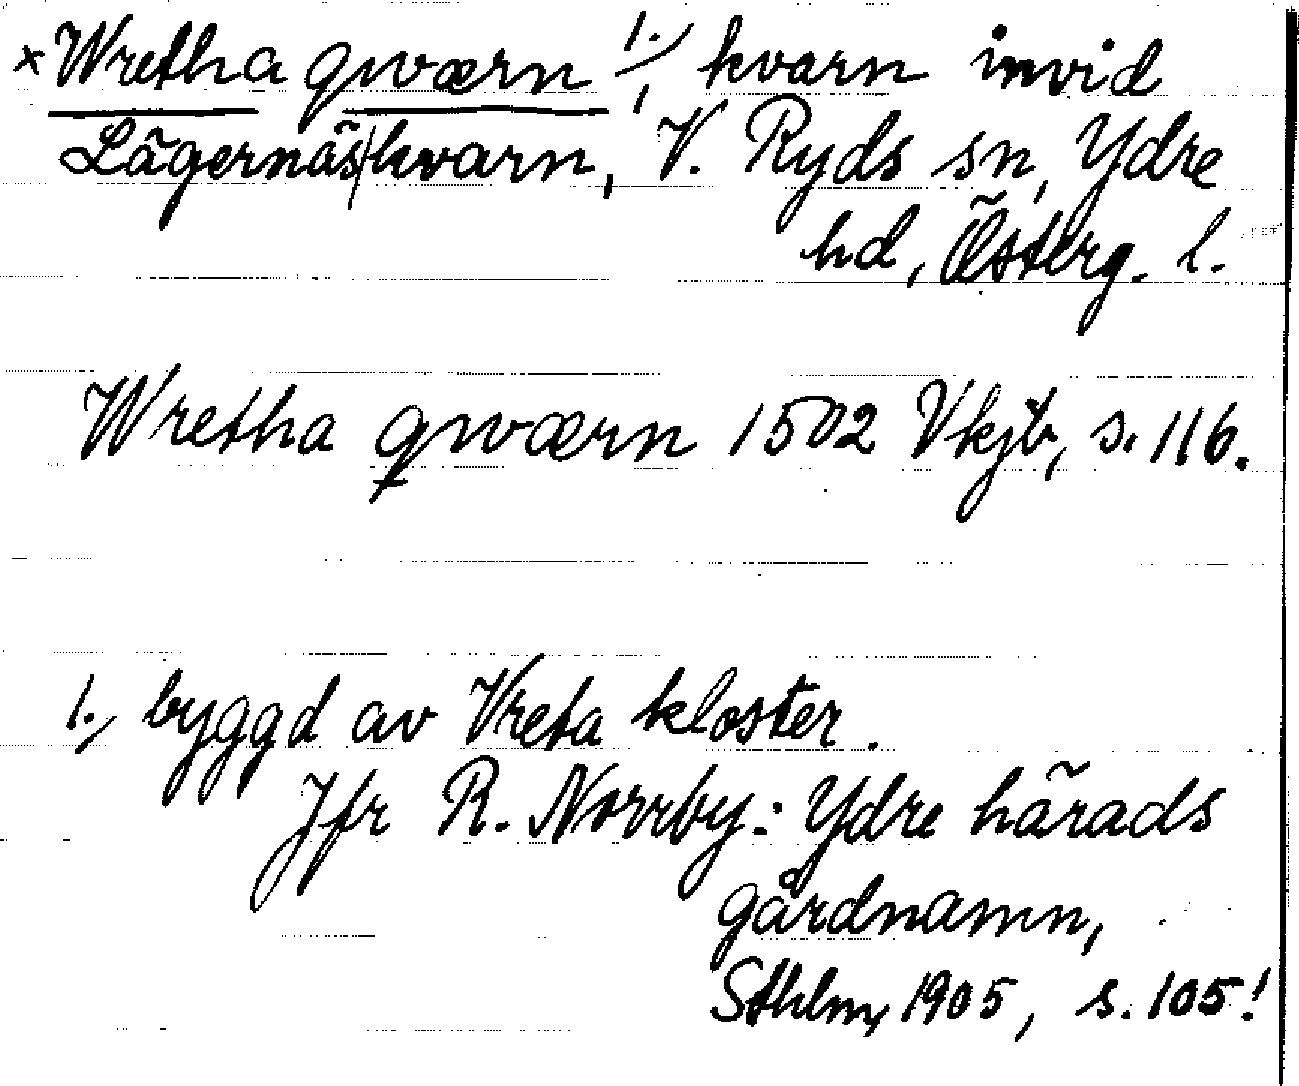 × Wretha qwærn 1.), kvarn invid
Lägernäs|kvarn, V. Ryds sn, Ydre
hd, Österg. l.
Wretha qwærn 1502 Vkjb, s. 116.
1.) byggd av Vreta kloster.
Jfr R. Norrby: Ydre härads
gårdnamn,
Sthlm, 1905, s. 105!